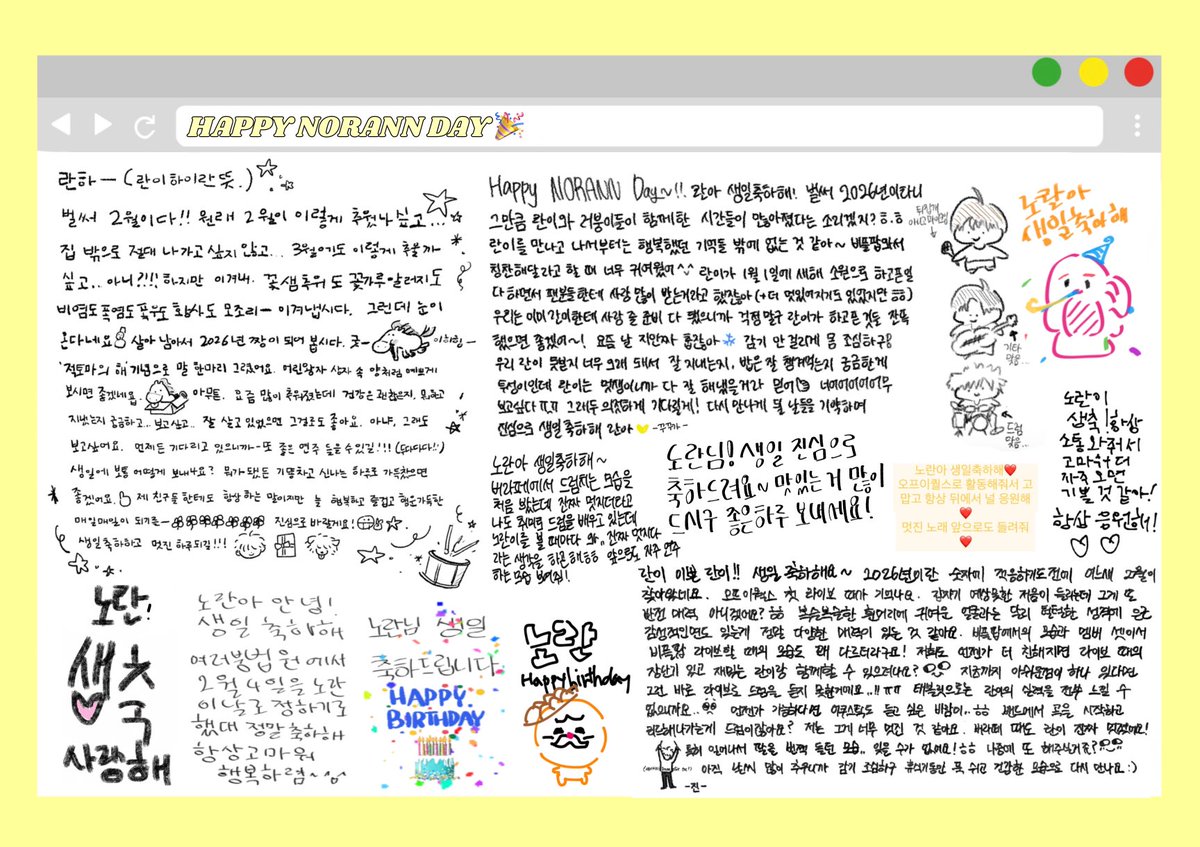 HAPPY NORANN DAY 🎉
란하ー(란이하이란 뜻.)
벌써 2월이다!! 원래 2월이 이렇게 추웠나 싶고...
집 밖으로 절대 나가고 싶지 않고... 3월에도 이렇게 추울까
싶고.. 아니?!!! 하지만 이겨내. 꽃샘추위도 꽃가루알러지도
비염도 폭염도 폭우도 화상도 모조리ー 이겨냅시다. 그런데 눈이
온다네요 살아 남아서 2026년 짱이 되어 봅시다.
적토마의 해 기념으로 말 한마리 그렸어요. 어린왕자 상자 속 양처럼 예쁘게
보시면 좋겠네요. 아무튼. 요즘 많이 추워졌는데 건강은 괜찮은지, 뭐하고
지냈는지 궁금하고...보고싶고.. 잘 살고 있었으면 그걸로도 좋아요. 아냐, 그래도
보고싶어요. 언제든 기다리고 있으니까ー또 좋은 연주 들을 수 있길!!!
생일에 보통 어떻게 보내세요? 뭐가 됐든 기똥차고 신나는 하루로 가득찼으면
좋겠어요. 제 친구들한테도 항상 하는 말이지만 늘 행복하고 즐겁고 행운가득한
매일매일이 되기를ー 진심으로 바랄게요!
생일 축하하고 멋진 하루되길!!!
Happy NORANN Day~!! 란아 생일축하해! 벌써 2026년이라니
그만큼 란이와 러붕이들이 함께한 시간들이 많아졌다는 소리겠지? ㅎ.ㅎ
란이를 만나고 나서부터는 행복했던 기억들 밖에 없는 것 같아~ 비플팝와서
칭찬해달라고 할 때 너무 귀여웠어^^ 란이가 1월 1일에 새해 소원으로 하고픈일
다 하면서 팬분들한테 사랑 많이 받는거라고 했잖아(+더 멋있어지기도 있었지만 ㅎㅎ)
우리는 이미 란이한테 사랑 줄 준비 다 됐으니까 걱정 말구 란이가 하고픈 것들 잔뜩
했으면 좋겠어~! 요즘 날 지인짜 춥잖아 감기 안 걸리게 몸 조심하구
우리 란이 못본지 너무 오래 돼서 잘 지내는지, 밥은 잘 챙겨먹는지 궁금한게
투성이인데 란이는 멋쟁이니까 다 잘 해냈을거라 믿어 너어어어어무
보고싶다 ㅠㅠ 그래두 의젓하게 기다릴게! 다시 만나게 될 날들을 기약하며
진심으로 생일축하해 란아
기타
맞음...
드럼
맞음...
노란아
생일축하해
노란이
생축! 항상
소통 와줘서
고마워 더
자주 오면
기쁠 것 같아!
항상 응원해!
노란아 생일축하해~
버라페에서 드럼치는 모습을
처음 봤는데 진짜 멋지더라고
나도 취미로 드럼을 배우고 있는데
노란이를 볼 때마다 와.. 진짜 멋지다
라는 생각을 하곤해ㅎㅎ 앞으로도 자주 연주
하는 모습 보여줘!
노란님! 생일 진심으로
축하드려요~ 맛있는거 많이
드시구 좋은하루 보내세요!
노란아 생일축하해❤️
오프이퀄스로 활동해줘서 고
맙고 항상 뒤에서 널 응원해
❤️
멋진 노래 앞으로도 들려줘
❤️
노란!
생축
사랑해
노란아 안녕!
생일 축하해
여러붕법원에서
2월 4일을 노란
이날로 정하기로
했대 정말 축하해
항상 고마워
행복하렴~
노란님 생일
축하드립니다
HAPPY
BIRTHDAY
노란
Happy birthday
란이 이쁜 란이!! 생일 축하해요~ 2026년이란 숫자에 적응하기도전에 어느새 2월이
찾아왔네요. 오프이퀄스 첫 라이브 때가 기억나요. 갑자기 예상못한 저음이 들리는데 그게 또
반전 매력 아니겠어요? ㅎㅎ
비플팝 라이브할 때의 모습도 꽤 다르더라구요! 저희도 언젠가 더 친해지면 라이브 때의
장난기 있고 재밌는 란이랑 함께할 수 있으려나요? 지금까지 아쉬운점이 하나 있다면
그건 바로 라이브로 드럼을 듣지 못한거예요..!! ㅠㅠ
없으니까요.. 언젠가 가능하다면 어쿠스틱도 듣고 싶은 바람이..ㅎㅎ 밴드에서 곡을 시작하고
리드해나가는게 드럼이잖아요? 저는 그게 너무 멋진 것 같아요. 버라페 때도 란이 진짜 멋졌어요!
잊을 수가 없어요! ㅎㅎ 나중에 또 해주실거죠?
아직 날씨 많이 추우니까 감기 조심하구 휴식기동안 푹 쉬고 건강한 모습으로 다시 만나요 :)
-진-